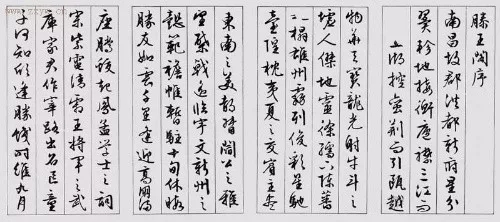 滕王閣序
南昌故郡洪都新府星分
翼軫地接衡廬襟三江而
五湖控蠻荊而引甌越
物華天寶龍光射牛斗之
墟人傑地靈徐孺下陳蕃
之榻雄州霧列俊彩星馳
臺隍枕夷夏之交賓主盡
東南之美都督閻公之雅
望棨戟遙臨宇文新州之
懿範襜帷暫駐十旬休暇
勝友如雲千里逢迎高朋滿
座騰蛟起鳳孟學士之詞
宗紫電清霜王將軍之武
庫家君作宰路出名區童
子何知躬逢勝餞時維九月